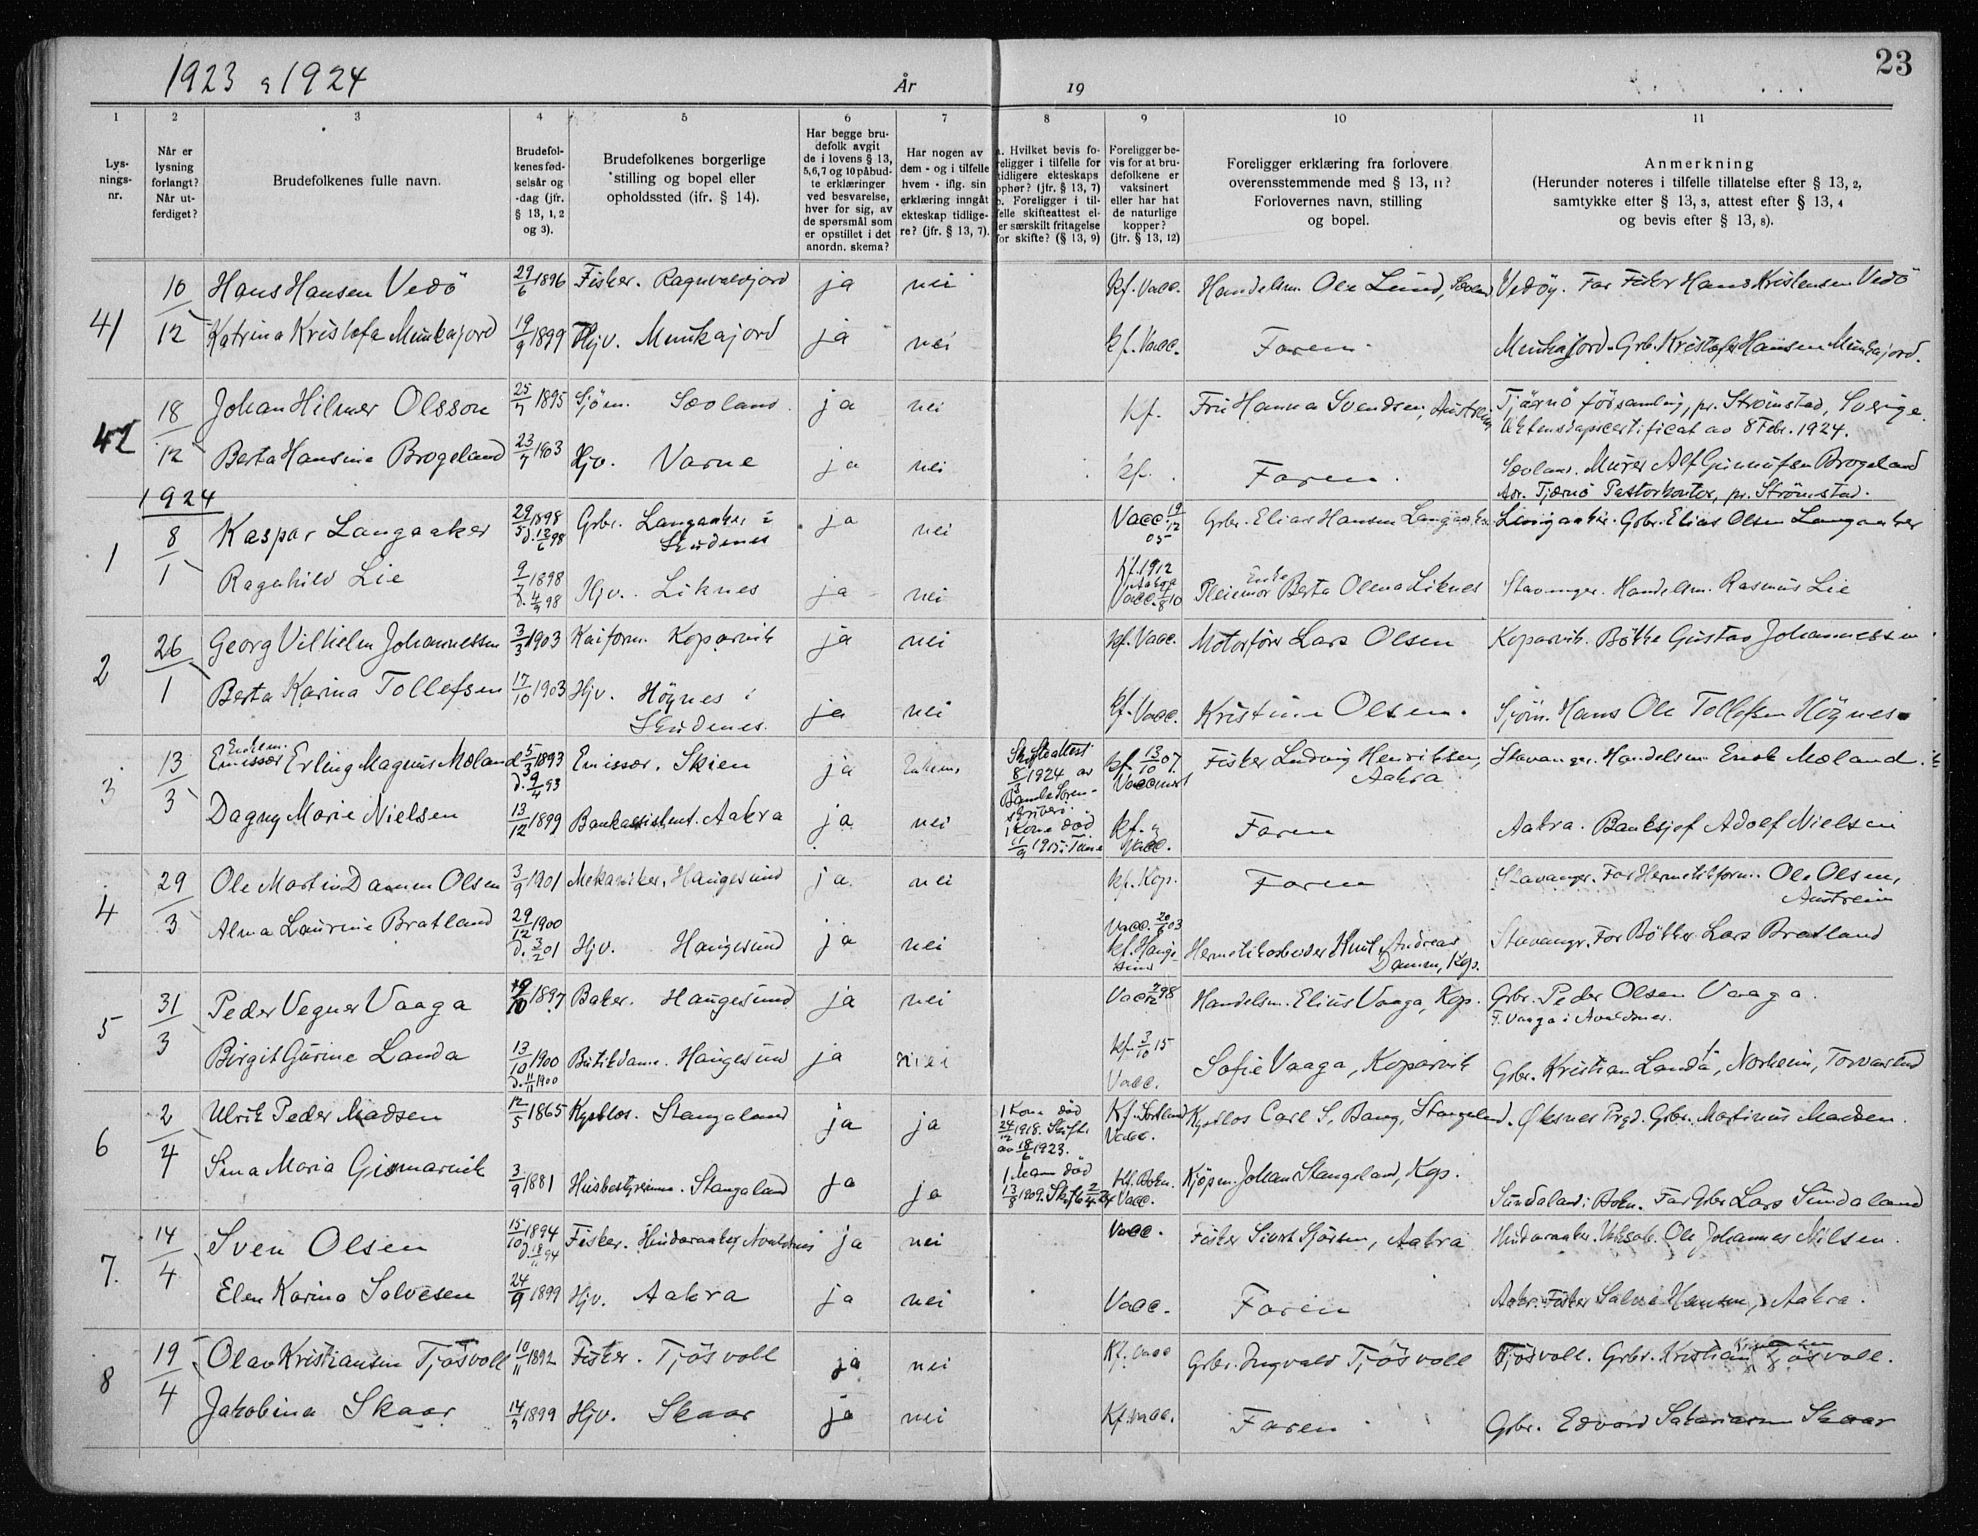 1923 & 1924
År
19
23
1
2
3
4
5
6
7
8
9
10
11
Lys-
nings-
nr.
Når er
lysning
forlangt?
Når ut-
ferdiget?
Brudefolkenes fulle navn.
Brudefol-
kenes fød-
selsår og
-dag (jfr.
§ 13, 1, 2
og 3).
Brudefolkenes borgerlige
stilling og bopel eller
opholdssted (jfr. § 14).
Har begge bru-
defolk avgit
de i lovens § 13,
5, 6, 7 og 10 påbud-
te erklæringer
ved besvarelse,
hver for sig, av
de spørsmål som
er opstillet i det
anordn. skema?
Har nogen av
dem - og i tilfelle
hvem - iflg. sin
erklæring inngåt
ekteskap tidlige-
re? (jfr. § 13, 7).
a. Hvilket bevis fo-
religger i tilfelle for
tidligere ekteskaps
ophør? (jfr. § 13, 7)
b. Foreligger i til-
felle skifteattest el-
ler særskilt fritagelse
for skifte? (§ 13, 9)
Foreligger be-
vis for at bru-
defolkene er
vaksinert
eller har hat
de naturlige
kopper?
(jfr. § 13, 12)
Foreligger erklæring fra forlovere
overensstemmende med § 13, 11?
Forlovernes navn, stilling
og bopel.
Anmerkning
(Herunder noteres i tilfelle tillatelse efter § 13, 2,
samtykke efter § 13, 3, attest efter § 13, 4
og bevis efter § 13, 8).
41 10/12 Hans Hansen Vedö 29/6 1896 Fisker. Ragnvaldjord ja nei kf. Vacc. Handelsm. Ole Lund, Vedöy. Far Fisker Hans Kristensen Vedö
Katrina Kristofa Munkajord 19/9 1899 Hjv. Munkajord ja nei kf. Vacc. Faren. Munkajord. Grb. Kristofer Hansen Munkajord.
42 18/12 Johan Hilmer Olsson 25/7 1895 Sjöm. Sæoland. ja nei kf. Fru Hanna Svendsen, Austreim Tjärnö församling, pr. Strömstad, Sverige.
Ektenskapscertificat av 8 Febr. 1924.
Berta Hansine Brogeland 23/7 1903 Hjv. Varne ja nei kf. Faren. Sæoland. Murer Alf Brogeland
Adr. Tjærnö Pastorkontor, pr. Strömstad.
1924
1 8/1 Kaspar Langaaker 29/5 1898 d. 12/6 98 Grbr. Langaaker i
Skudenes ja nei Vacc 19/12 05 Grbr. Elias Hansen Langaaker Langaaker. Grbr. Elias Olsen Langaaker
Ragnhild Lie 9/7 1898 d. 4/9 98 Hjv. Liknes ja nei kf. 1912
Aakra
Vacc. 4/8 10 Enke
Pleiemor Berta Olena Liknes Stavanger. Handelsm. Rasmus Lie
2 26/1 Georg Vilhelm Johannessen 3/3 1903 Kaiform. Kopervik ja nei kf. Vacc. Motorförer Lars Olsen Kopervik. Bökker Gustav Johannessen.
Berta Karina Tollefsen 17/10 1903 Hjv. Högnes i
Skudenes. ja nei kf. Vacc. Kristine Olsen. Sjöm. Hans Ole Tollefsen Högnes.
3 13/3 Enkem.
Emissær Erling Magnus Mæland 5/3 1893
d. 9/4 93 Emissær. Skien ja Enkem. Skifteattest
8/3 1924 av
Bamle Soren-
skriveri.
1 Kone död
11/9 1915 kf. 13/10 07.
Vaccinert Fisker Ludvig Henriksen,
Aakra Stavanger. Handelsm. Enok Mæland.
Dagny Marie Nielsen 13/12 1899 Bankassistent. Aakra ja nei kf. &
Vacc. Faren Aakra. Banksjef Adolf Nielsen
4 29/3 Ole Martin Damm Olsen 3/9 1901 Mekaniker. Haugesund ja. nei kf. Kop. Faren Stavanger. Far Hermetikform. Ole Olsen,
Austreim
Alma Laurine Bratland 29/12 1900
d. 3/2 01 Hjv. Haugesund ja nei Vacc. 20/6 03
kf. Hauge-
sund Hermetikarbeider Knut Andreas
Damm, Kop. Stavangr. Far Bökker Lars Bratland
5 31/3 Peder Vegner Vaaga 10 1897 Baker. Haugesund ja nei Vacc 98 Handelsm. Elius Vaaga, Kop. Grbr. Peder Olsen Vaaga.
F. Vaaga i Avaldsnes.
Birgit Gurine Landa 13/10 1900
d. 11/11 1900 Butikdame. Haugesund ja nei kf. 3/10 15
Vacc. Sofie Vaaga, Kopervik Grbr. Kristian Landa, Norheim, Torvastad
6 2/4 Ulrik Peder Madsen 12/5 1865 Kystlos. Stangaland ja ja 1 Kone död
24/12 1918. Skifte
av 18/6 1923. Kf. Sortland
Vacc. Kystlos Carl S. Bang, Stangeland. Öksnes Prgd. Grbr. Martinus Madsen.
Sina Maria Gismarvik 3/9 1881 Husbestyrerinne. Stangaland ja ja 1. Mann död
13/8 1909. Kf. Bokn.
Vacc. Kjöpm. Johan Stangeland, Kop.
Sundaland i Bokn. Far Grbr Lars Sundaland
7. 14/4 Sven Olsen 15/10 1894
d. 18/11 94 Fisker. Hinderaaker, Avaldsnes ja nei Vacc. Fisker Sivert Sjursen, Aakra Hinderaaker. Ole Johannes Nilsen.
Elen Karina Salvesen 24/9 1899 Hjv. Aakra ja nei Vacc. Faren Aakr. Fisker Salve Hansen, Aakra.
8 19/4 Olav Kristiansen Tjösvoll 10/11 1892 Fisker. Tjösvoll ja nei Kf. Vacc Grbr. Ingvald Tjösvoll Tjösvoll. Grbr. Kristian Tjösvoll.
Jakobina Skaar 14/7 1899 Hjv. Skaar ja nei Kf. Vacc. Faren Grbr. Edvard Sakariasen Skaar